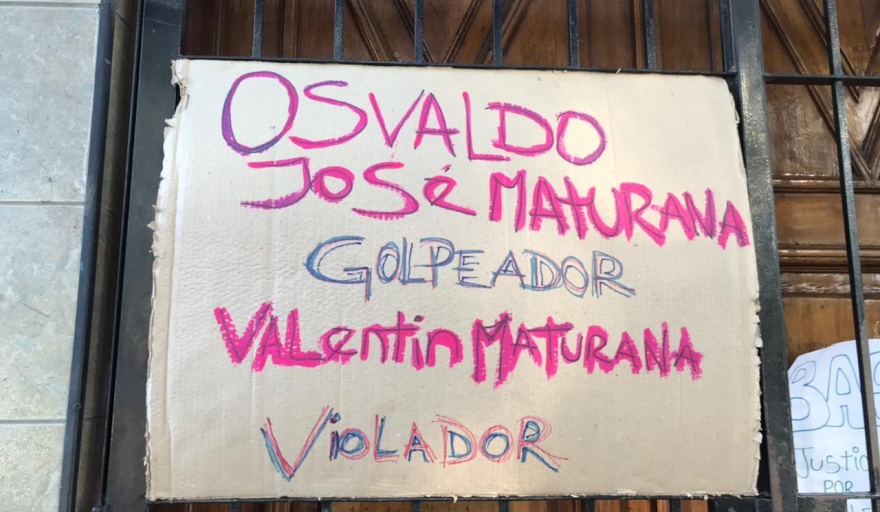 OSVALDO
JOSé MATURANA
GOLPEADOR
VALentin MATURANA
VIOLADOR
POR